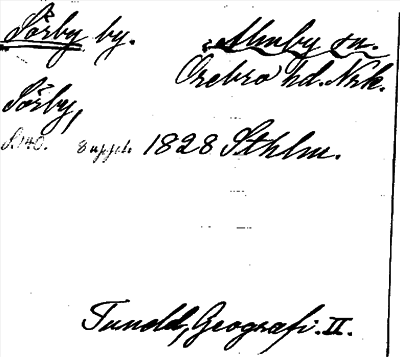 Sörby by. Almby sn.
Örebro hd. Nrk.
Sörby,
S. 140. 8 uppl. 1828 Sthlm.
Tuneld, Geografi. II.